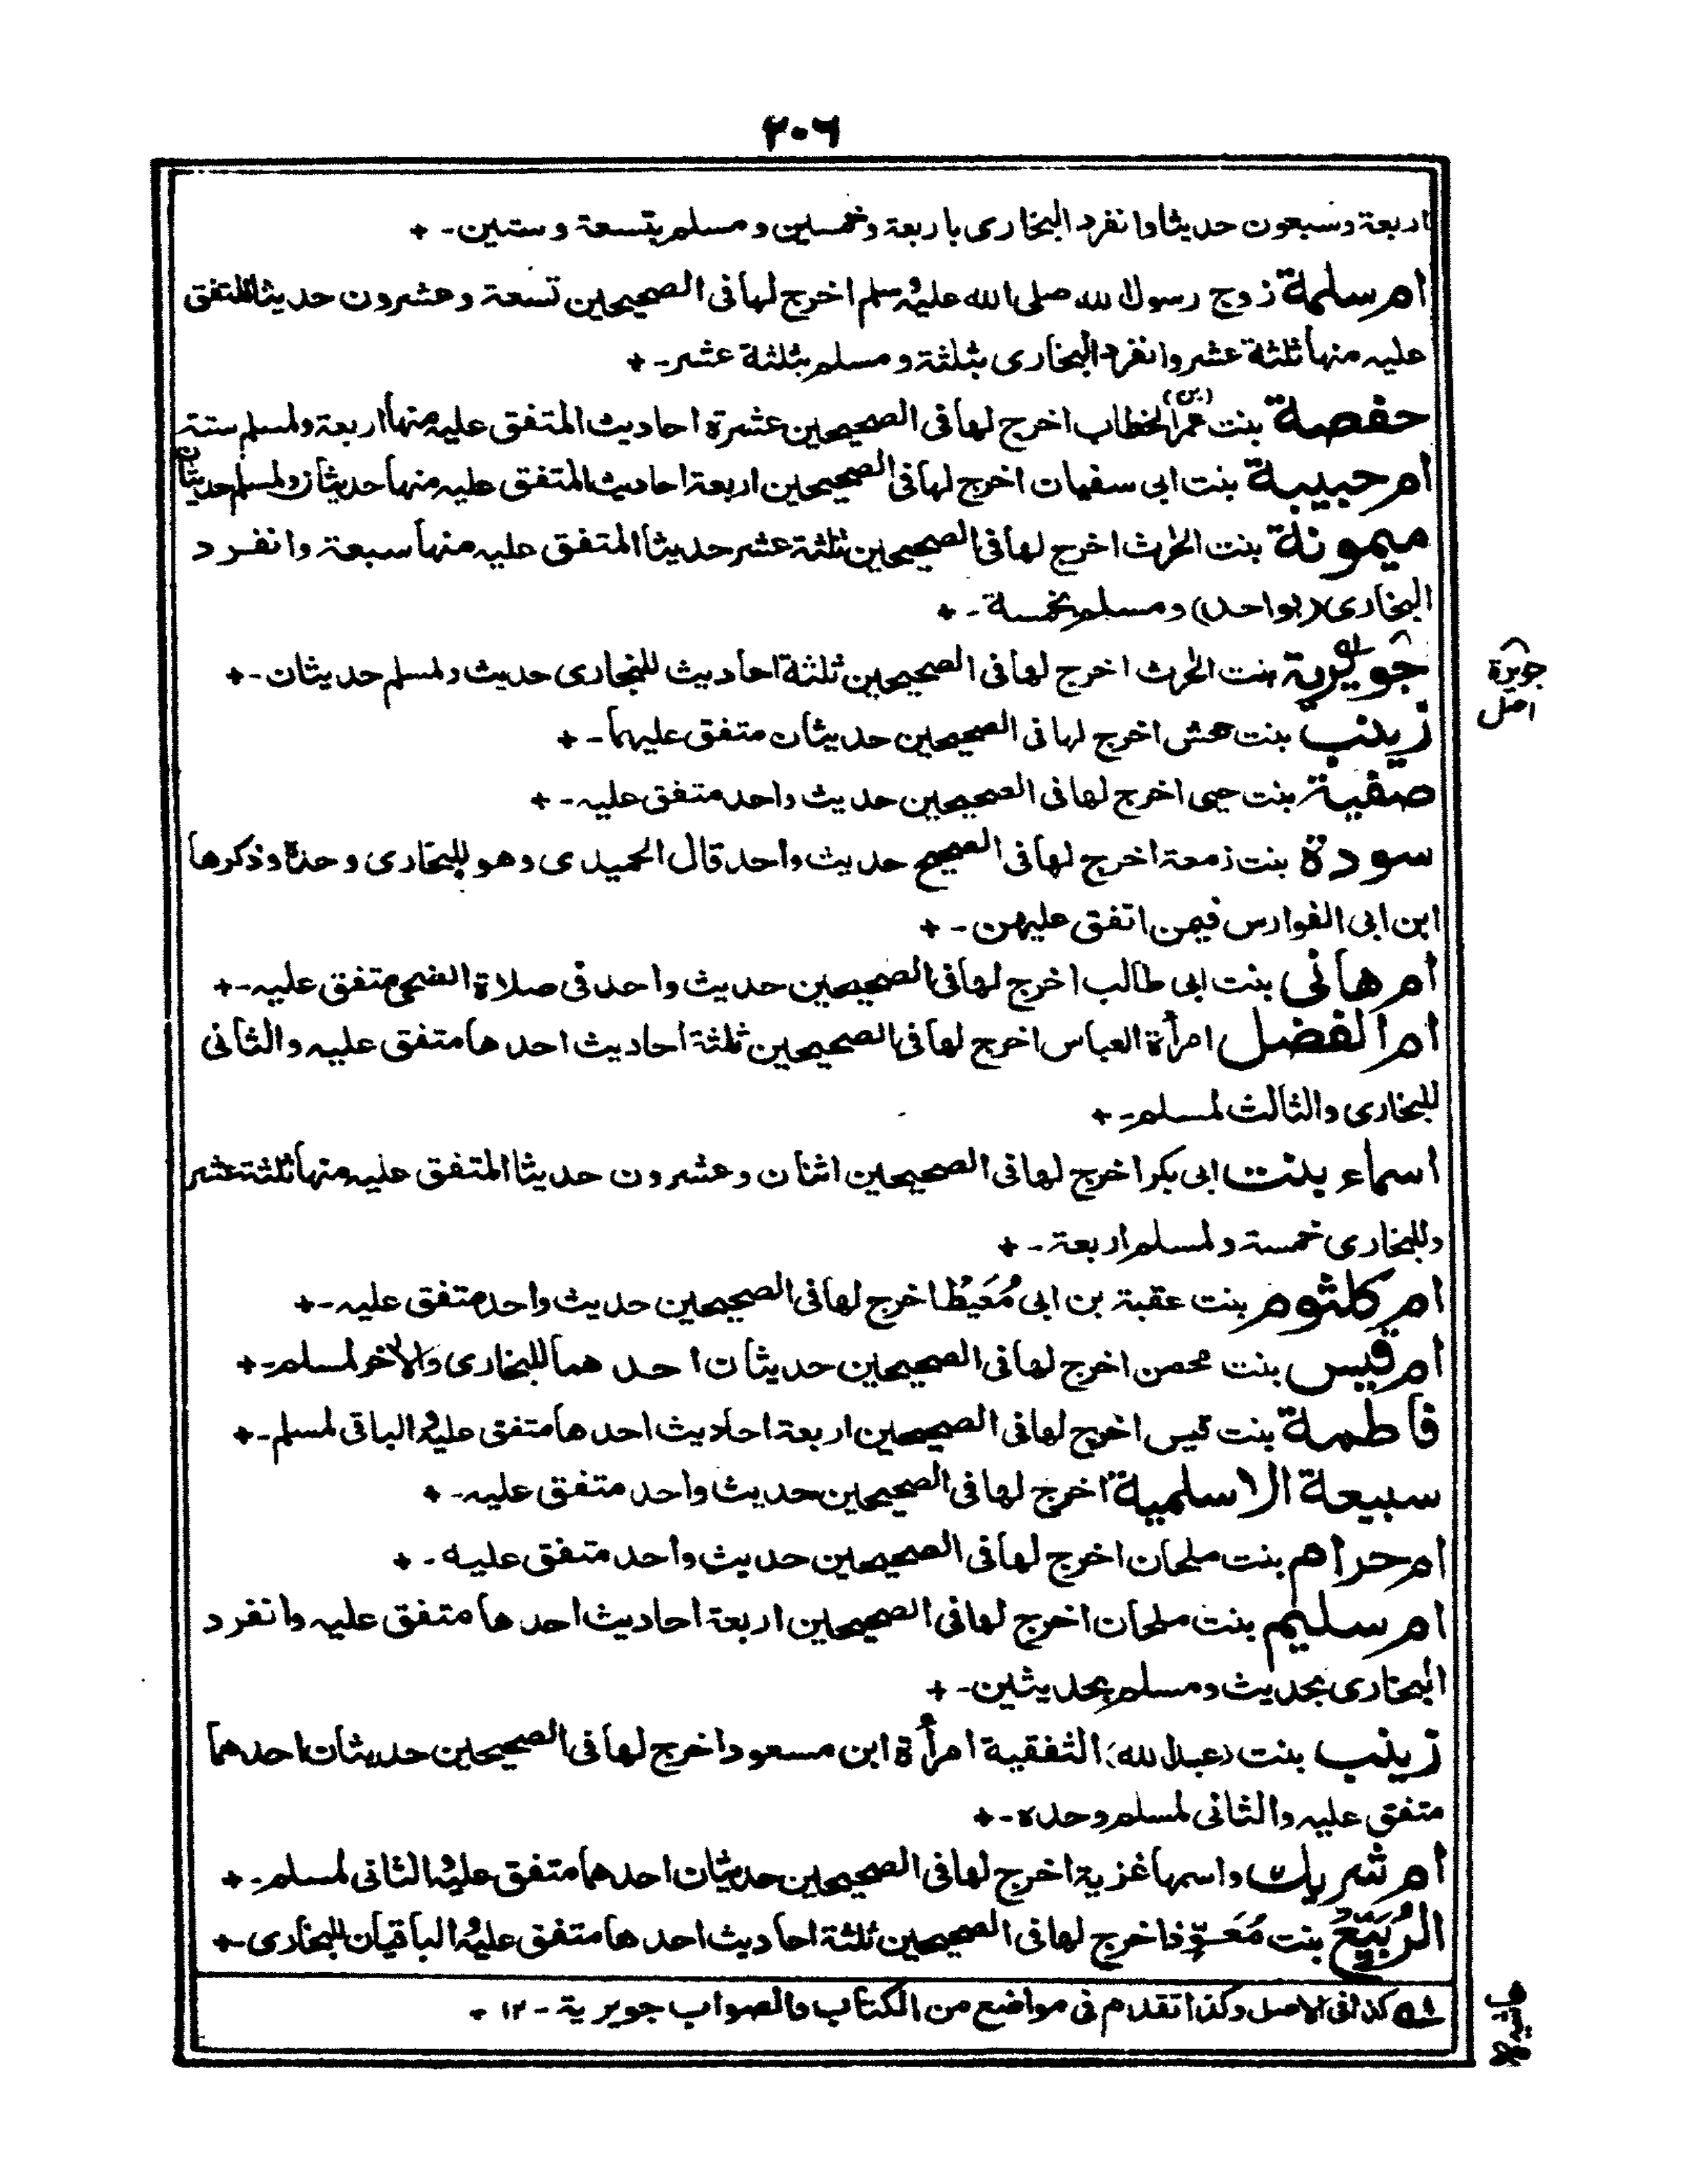 ٢٠٦
اربعة وسبعون حديثا وانفرد البخارى باربعة وخمسين ومسلم بتسعة وستين -+
ام سلمة زوج رسول الله صلى الله عليه وسلم اخرج لها فى الصحيحين تسعة وعشرون حديثا المتفق
عليه منها ثلثة عشر وانفرد البخارى بثلثة ومسلم بثلثة عشر -+
حفصة بنت عمر (بن) الخطاب اخرج لها فى الصحيحين عشرة احاديث المتفق عليه منها اربعة ولمسلم ستة
ام حبيبة بنت ابى سفيان اخرج لها فى الصحيحين اربعة احاديث المتفق عليه منها حديثان ولمسلم حديثان
ميمونة بنت الحرث اخرج لها فى الصحيحين ثلثة عشر حديثا المتفق عليه منها سبعة وانفرد
البخارى (بواحد) ومسلم بخمسة -+
جويرية بنت الحرث اخرج لها فى الصحيحين ثلثة احاديث للبخارى حديث ولمسلم حديثان -+
جويرة
اصل
زينب بنت جحش اخرج لها فى الصحيحين حديثان متفق عليهما -+
صفية بنت حيى اخرج لها فى الصحيحين حديث واحد متفق عليه -+
سودة بنت زمعة اخرج لها فى الصحيح حديث واحد قال الحميدى وهو للبخارى وحدة وذكرها
ابن ابى الفوارس فيمن اتفق عليهن -+
ام هانى بنت ابى طالب اخرج لها فى الصحيحين حديث واحد فى صلاة الضحى متفق عليه -+
ام الفضل امرأة العباس اخرج لها فى الصحيحين ثلثة احاديث احدها متفق عليه والثانى
للبخارى والثالث لمسلم -+
اسماء بنت ابى بكر اخرج لها فى الصحيحين اثنان وعشرون حديثا المتفق عليه منها ثلثة عشر
وللبخارى خمسة ولمسلم اربعة -+
ام كلثوم بنت عقبة بن ابى مُعَيْط اخرج لها فى الصحيحين حديث واحد متفق عليه -+
ام قيس بنت محصن اخرج لها فى الصحيحين حديثان احدهما للبخارى والآخر لمسلم -+
فاطمة بنت قيس اخرج لها فى الصحيحين اربعة احاديث احدها متفق عليه والباقى لمسلم -+
سبيعة الاسلمية اخرج لها فى الصحيحين حديث واحد متفق عليه -+
ام حرام بنت ملحان اخرج لها فى الصحيحين حديث واحد متفق عليه -+
ام سليم بنت ملحان اخرج لها فى الصحيحين اربعة احاديث احدها متفق عليه وانفرد
البخارى بحديث ومسلم بحديثين -+
زينب بنت (عبد الله) الثقفية امرأة ابن مسعود اخرج لها فى الصحيحين حديثان احدهما
متفق عليه والثانى لمسلم وحده -+
ام شريك واسمها غزية اخرج لها فى الصحيحين حديثان احدهما متفق عليه والثانى لمسلم -+
الرُبَيِّعُ بنت مُعَوِّذ اخرج لها فى الصحيحين ثلثة احاديث احدها متفق عليه والباقيان للبخارى -+
ـ١ـه كذا فى الاصل وكذا تقدم فى مواضع من الكتاب والصواب جويرية - ١٢ -